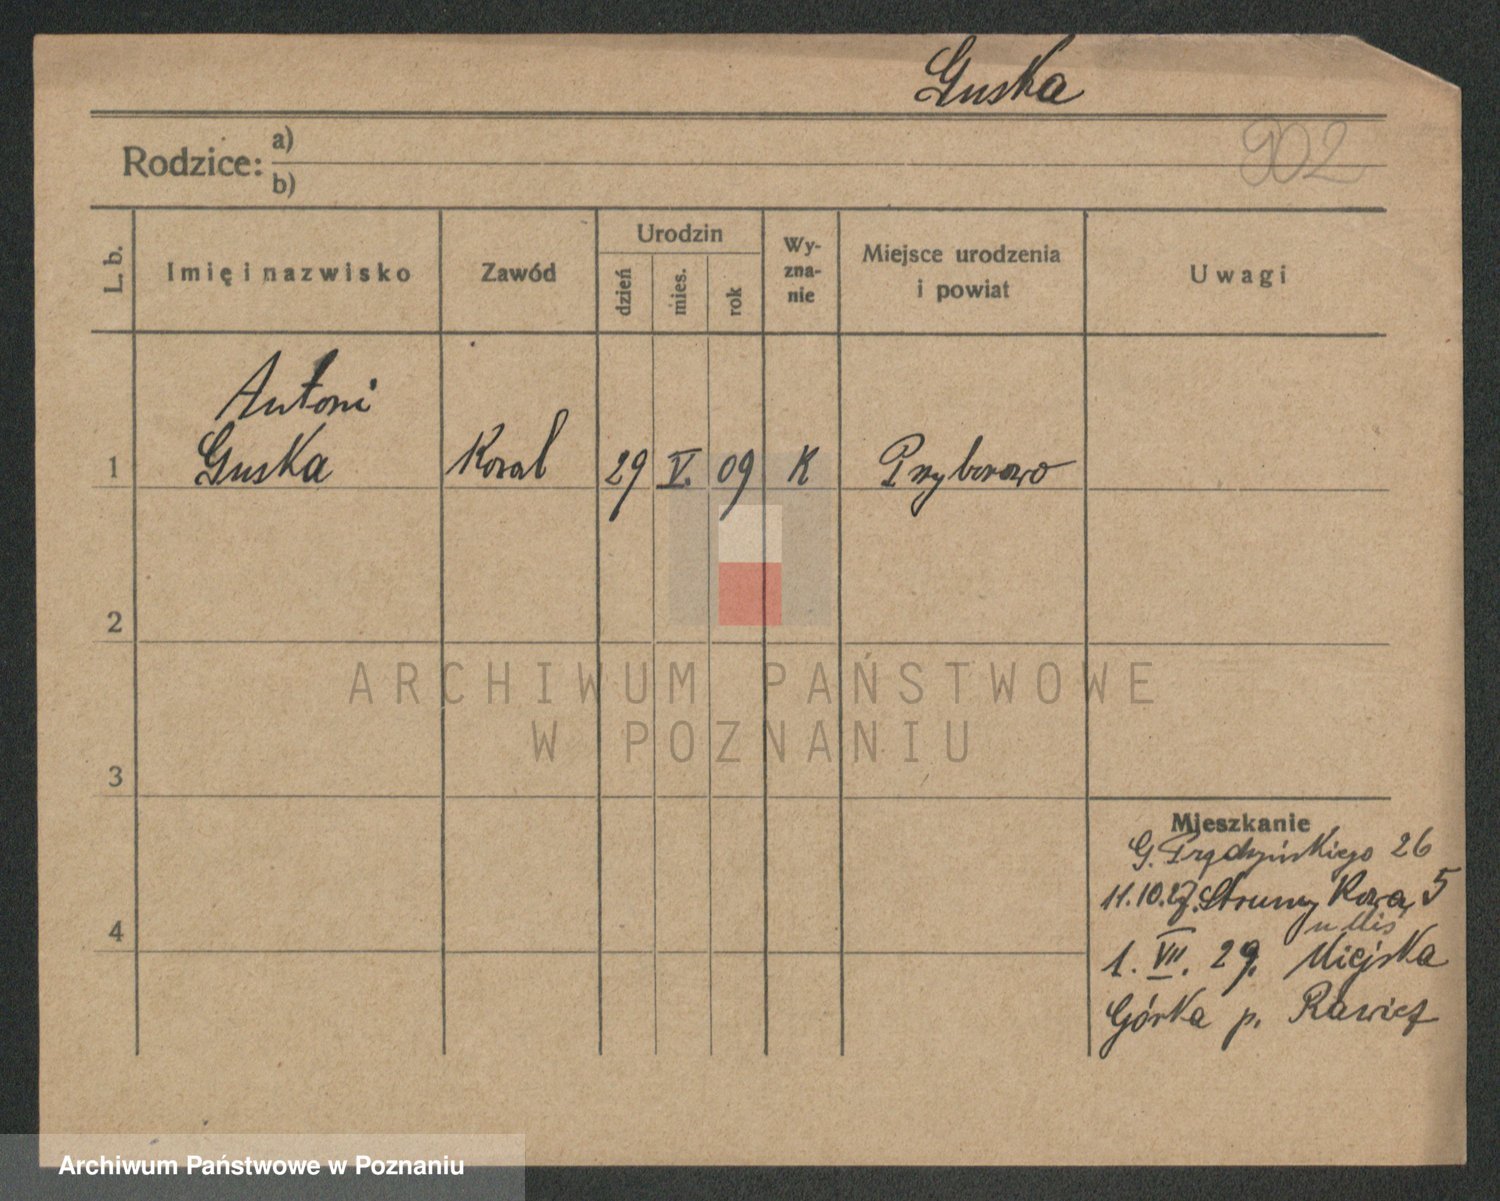 Guska
902
Rodzice: a)
b)
L. b.
Imię i nazwisko
Zawód
Urodzin
dzień
mies.
rok
Wy-
zna-
nie
Miejsce urodzenia
i powiat
Uwagi
Antoni
1 Guska Kowal 29 V. 09 K Przyborowo
2
ARCHIWUM PAŃSTWOWE
W POZNANIU
3
Mieszkanie
G. Prądzyńskiego 26
11.10.27. Strumykowa 5
4
u Mis
1. VII. 29. Miejska
Górka p. Rawicz
Archiwum Państwowe w Poznaniu